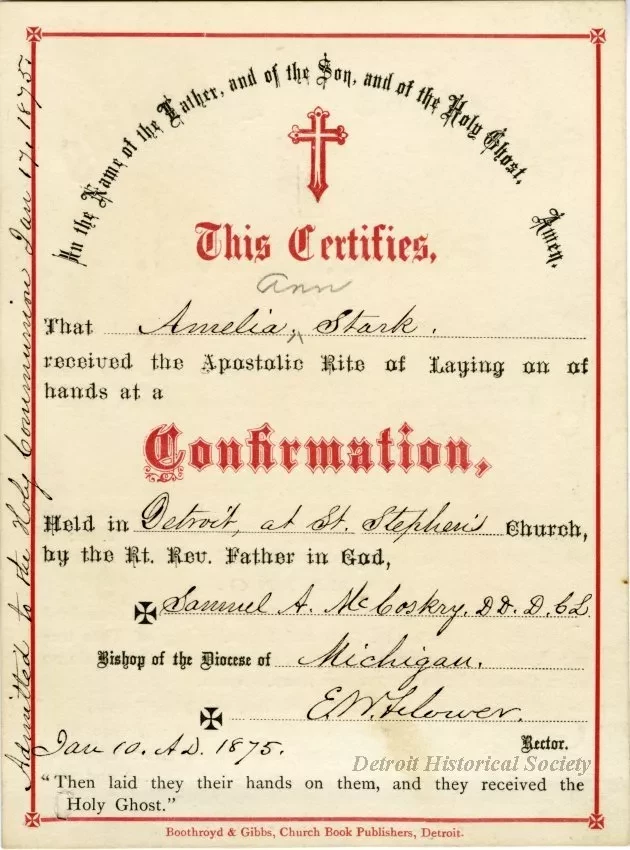 In the Name of the Father, and of the Son, and of the Holy Ghost, Amen.
This Certifies,
Ann
That Amelia ^ Stark.
received the Apostolic Rite of Laying on of
hands at a
Confirmation,
Held in Detroit, at St. Stephen's Church,
by the Rt. Rev. Father in God,
✠ Samuel A. McCoskry. DD. D.C.L
Bishop of the Diocese of Michigan.
✠ E.W. Flower.
Jan 10. A.D. 1875. Rector.
"Then laid they their hands on them, and they received the
Holy Ghost."
Boothroyd & Gibbs, Church Book Publishers, Detroit.
Admitted to the Holy Communion Jan 17, 1875.
Detroit Historical Society